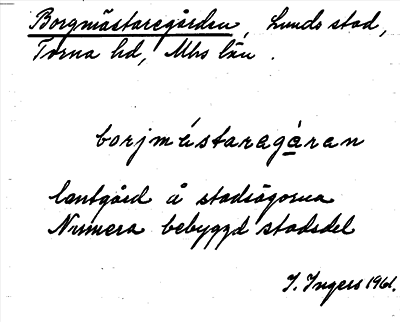 Borgmästaregården, Lunds stad,
Torna hd, Mhs län.
borjmästaragåran
lantgård å stadsägorna
Numera bebyggd stadsdel
I. Ingers 1961.